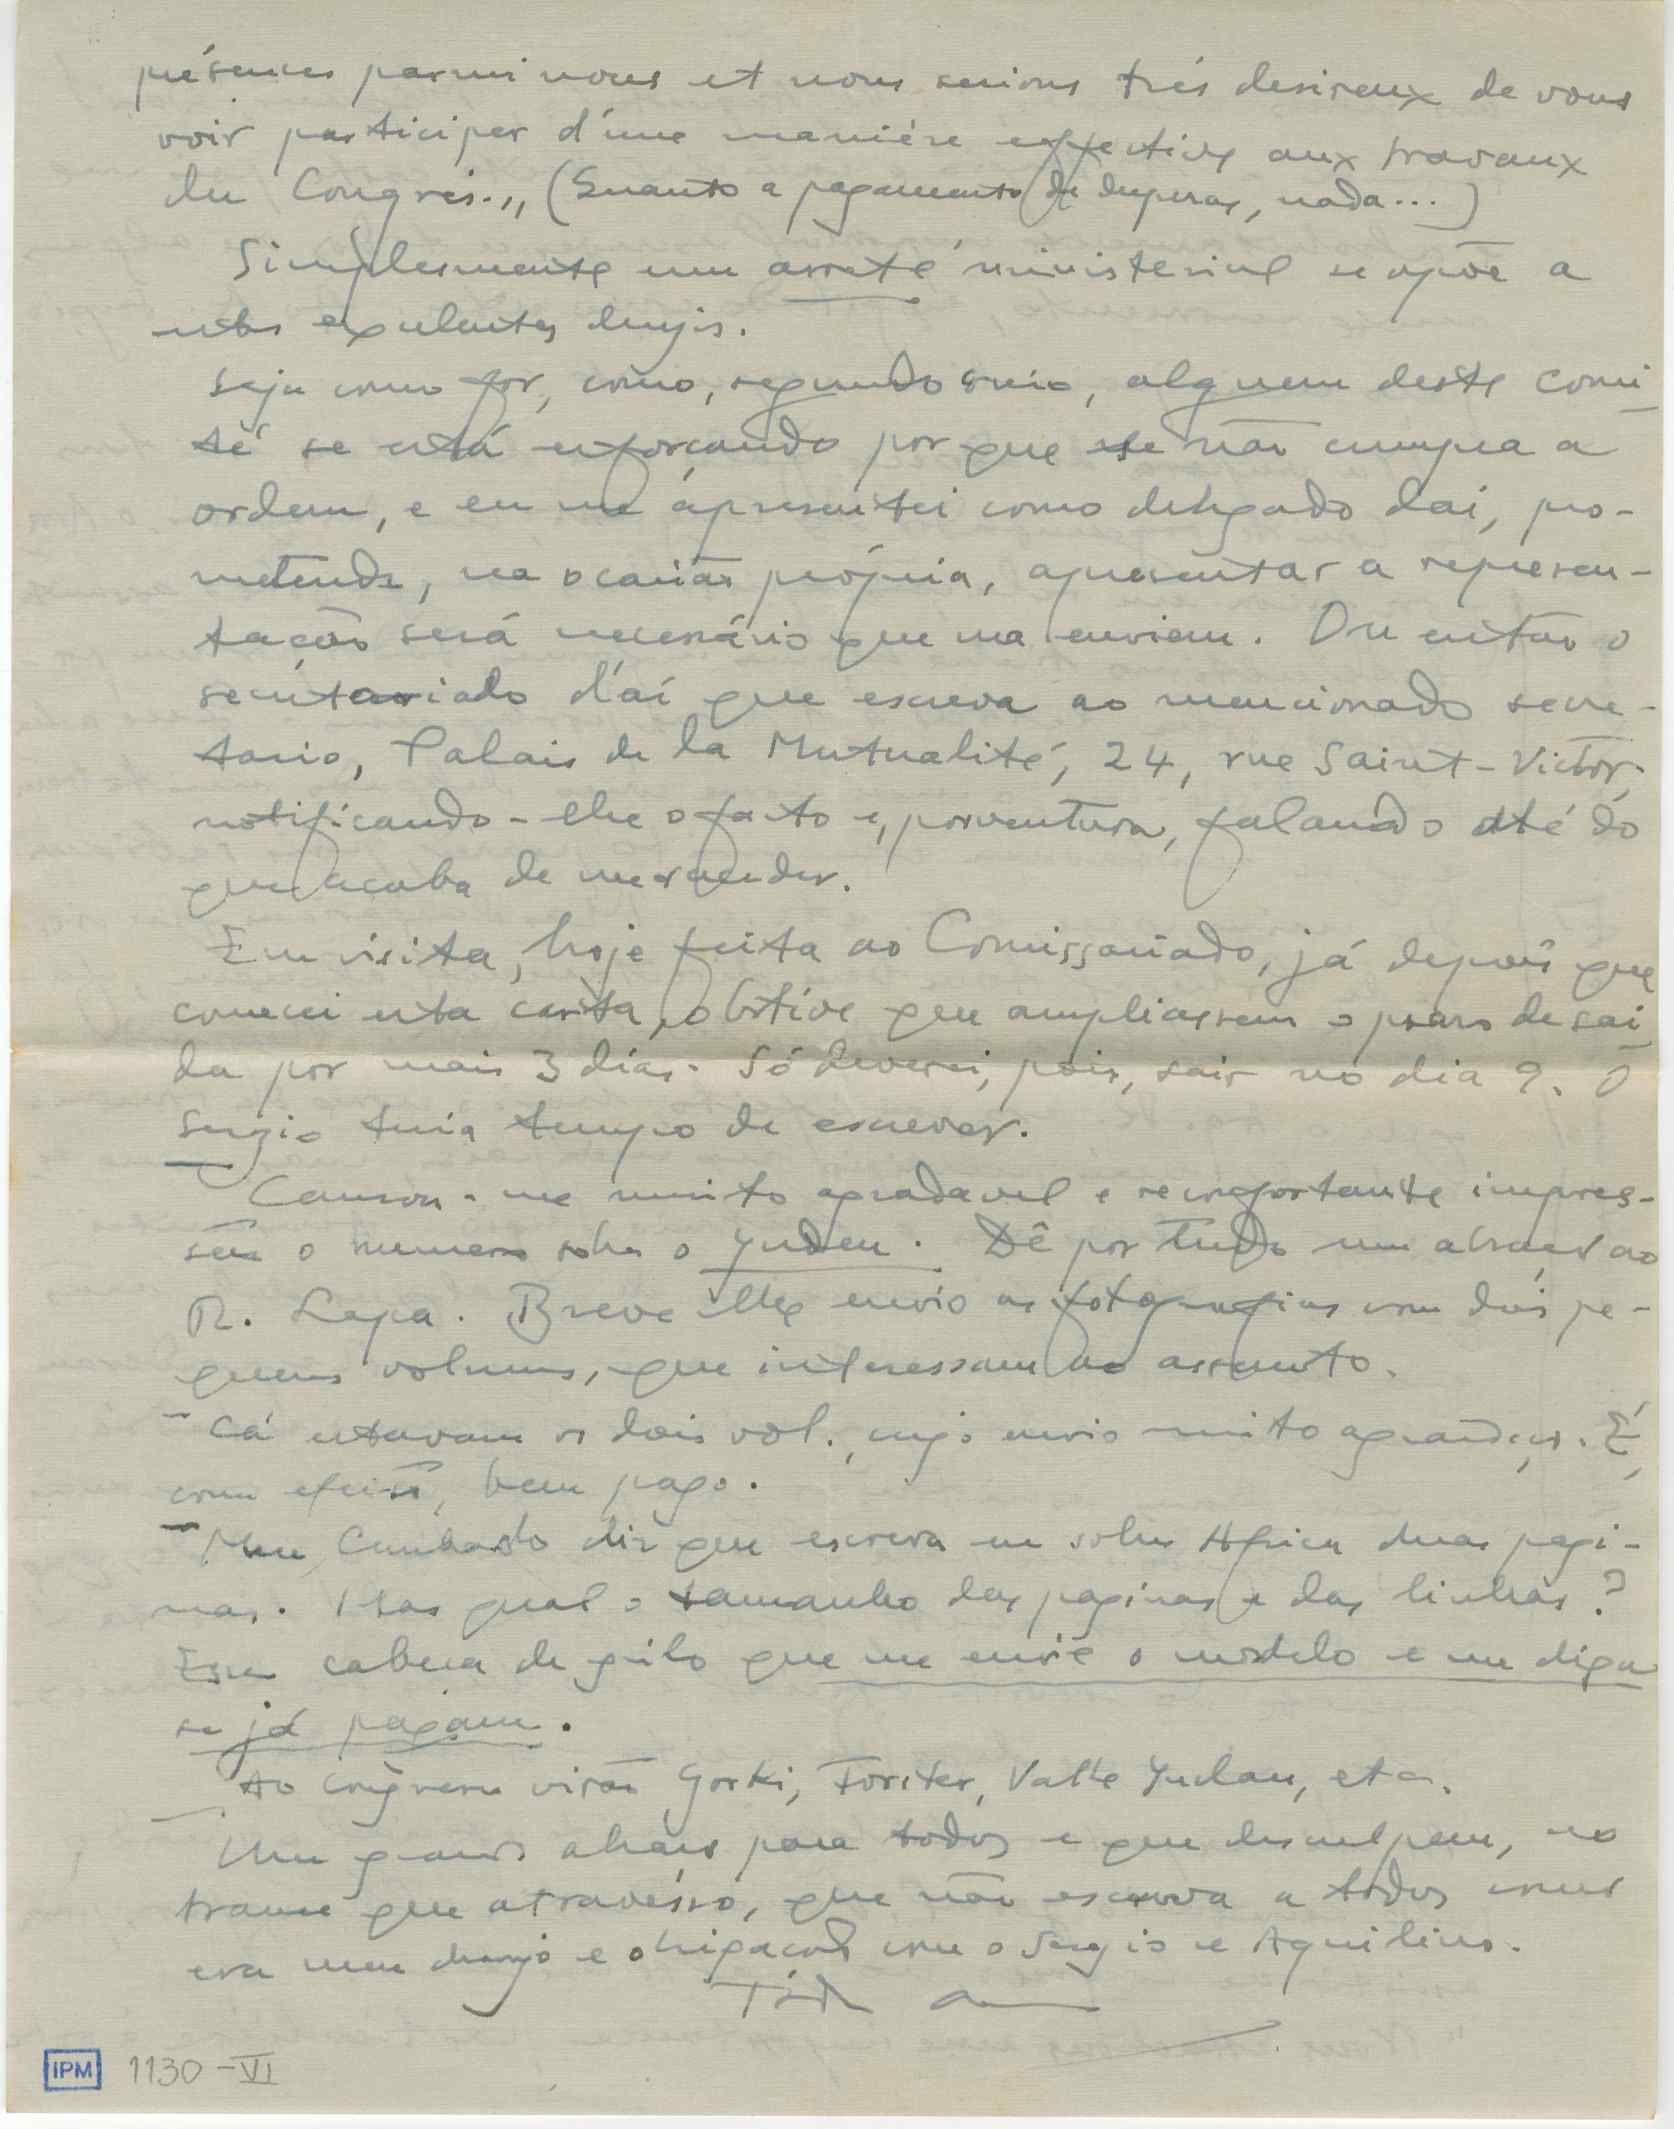 présences parmi nous et nous serions trés desireux de vous
voir participer d'une maniére effective aux travaux
du Congrés.,, (Quanto a pagamento de despesas, nada...)
Simplesmente um arreté ministerial se opõe a
estes exulentes desejos.
Seja como for, como, segundo creio, alguem deste comi-
té se está esforçando por que se não cumpra a
ordem, e eu me apresentei como delegado daí, pro-
metendo, na ocasião própria, apresentar a represen-
tação será necessário que ma enviem. Ou então o
secretariado d'aí que escreva ao mencionado secre-
tario, Palais de la Mutualité, 24, rue Saint-Victor,
notificando-lhe o facto e, porventura, falando até do
que acaba de me suceder.
Em visita, hoje feita ao Comissariado, já depois que
comecei esta carta, obtive que ampliassem o praso de saí-
da por mais 3 dias. Só deverei, pois, sair no dia 9. O
Sergio teria tempo de escrever.
Causou-me muito agradavel e reconfortante impres-
são o numero sobre o Judeu. Dê por tudo um abraço ao
R. Lapa. Breve lhe envio as fotografias com dois pe-
quenos volumes, que interessam ao assunto.
Cá estavam os dois vol., cujo envio muito agradeço. É,
com efeito, bem pago.
Meu Cunhado diz que escreva eu sobre Africa duas pagi-
nas. Mas qual o tamanho das paginas e das linhas?
Essa cabeça de grilo que me envie o modelo e me diga
se já pagam.
Ao congresso virão Gorki, Forster, Valle Inclan, etc.
Um grande abraço para todos e que desculpem, no
transe que atravesso, que não escreva a todos como
era meu desejo e obrigação com o Sergio e Aquilino.
IPM 1130-VI